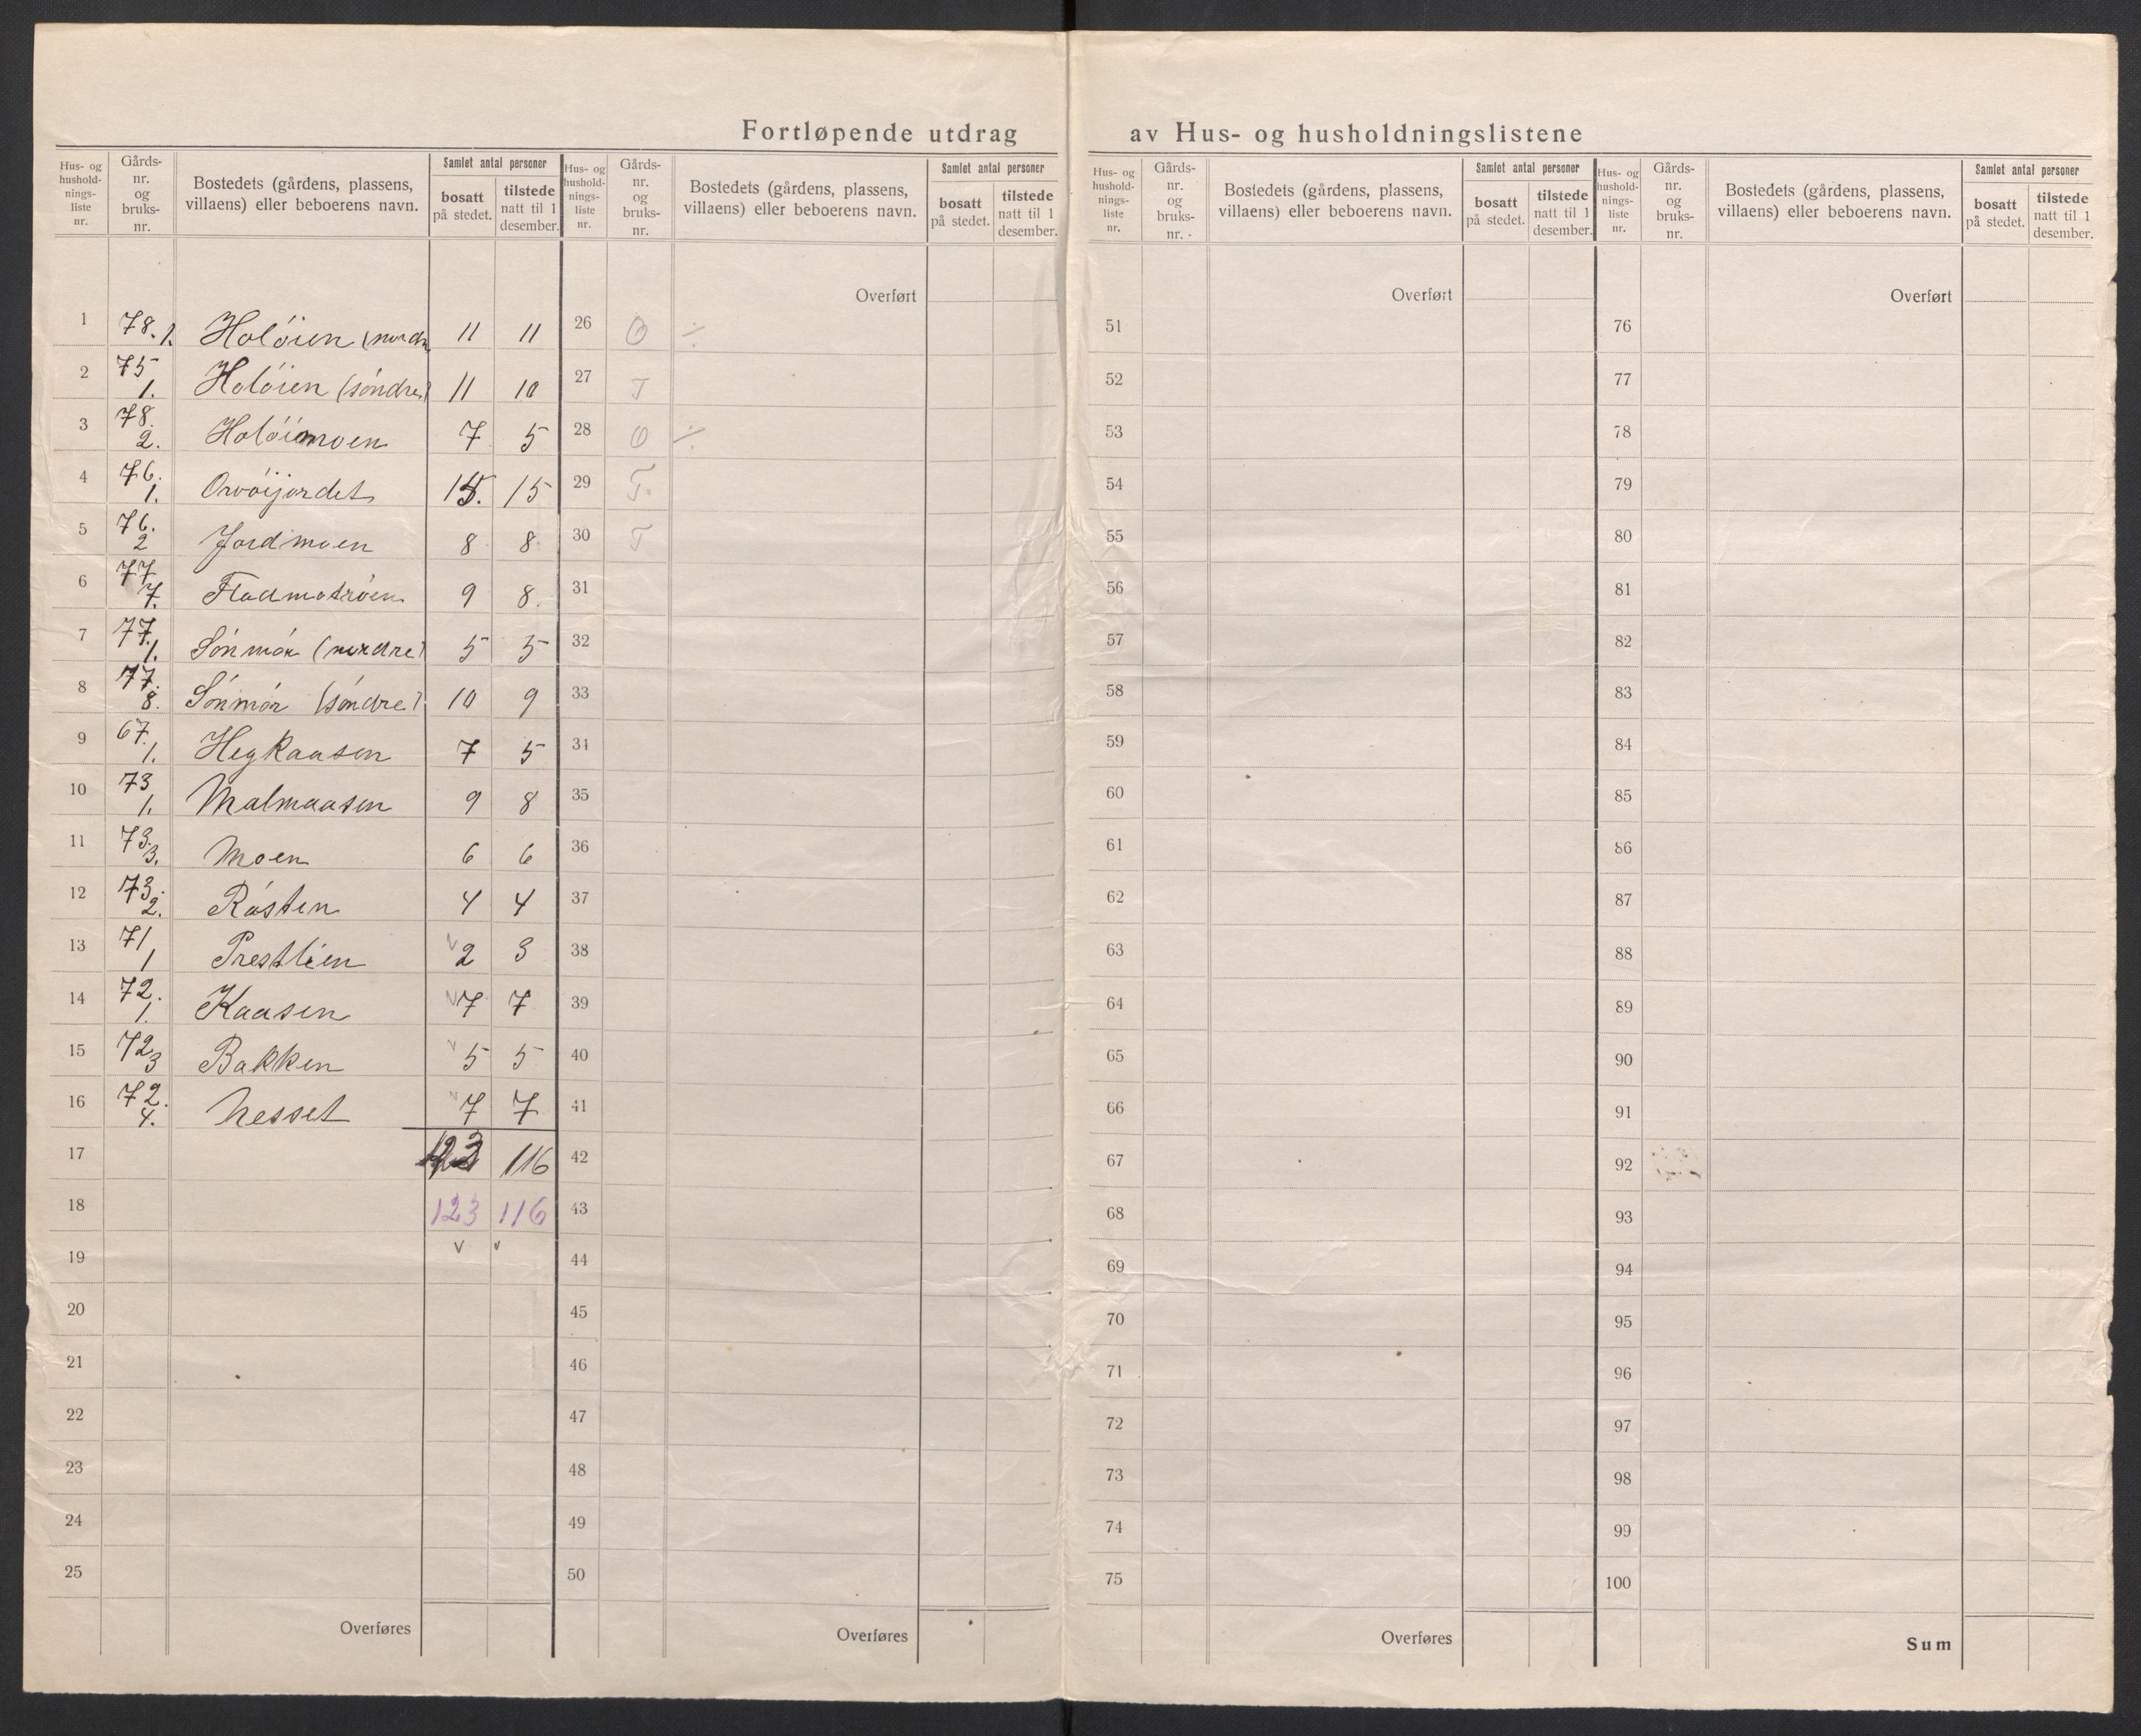 Fortløpende utdrag av Hus- og husholdningslistene
Hus- og hushold-nings-liste nr. Gårds-nr. og bruks-nr. Bostedets (gårdens, plassens, villaens) eller beboerens navn. Samlet antal personer bosatt på stedet. tilstede natt til 1 desember.
Hus- og hushold-nings-liste nr. Gårds-nr. og bruks-nr. Bostedets (gårdens, plassens, villaens) eller beboerens navn. Samlet antal personer bosatt på stedet. tilstede natt til 1 desember.
Hus- og hushold-nings-liste nr. Gårds-nr. og bruks-nr. Bostedets (gårdens, plassens, villaens) eller beboerens navn. Samlet antal personer bosatt på stedet. tilstede natt til 1 desember.
Hus- og hushold-nings-liste nr. Gårds-nr. og bruks-nr. Bostedets (gårdens, plassens, villaens) eller beboerens navn. Samlet antal personer bosatt på stedet. tilstede natt til 1 desember.
Overført Overført Overført
1 78. 1. Holöien (nordr 11 11 26 O ÷ 51 76
2 75 1. Holöien (söndre) 11 10 27 T 52 77
3 78. 2. Holöimoen 7 5 28 O ÷ 53 78
4 76. 1. Orvöijordet 15. 15 29 T. 54 79
5 76. 2 Jordmoen 8 8 30 T 55 80
6 77 7. Fladmotröen 9 8. 31 56 81
7 77. 1. Sönmör (nordre) 5 5 32 57 82
8 77. 8. Sönmör (söndre) 10 9 33 58 83
9 67. 1. Hegkaasen 7 5 34 59 84
10 73 1. Malmaasen 9 8 35 60 85
11 73. 3. Moen 6 6 36 61 86
12 73. 2. Rösten 4 4 37 62 87
13 71 1 Prestlien v 2 3 38 63 88
14 72. 1. Kaasen v 7 7 39 64 89
15 72 3 Bakken v 5 5 40 65 90
16 72. 4. Nesset v 7 7 41 66 91
17 123 116 42 67 92
18 123 116 43 68 93
19 v v 44 69 94
20 45 70 95
21 46 71 96
22 47 72 97
23 48 73 98
24 49 74 99
25 50 75 100
Overføres Overføres Overføres Sum